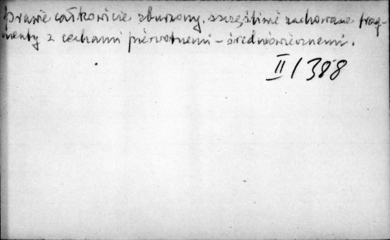 prawie całkowicie zburzony. szczęśliwie zachowane frag-
menty z cechami pierwotnemi - średniowiecznemi.
II/388